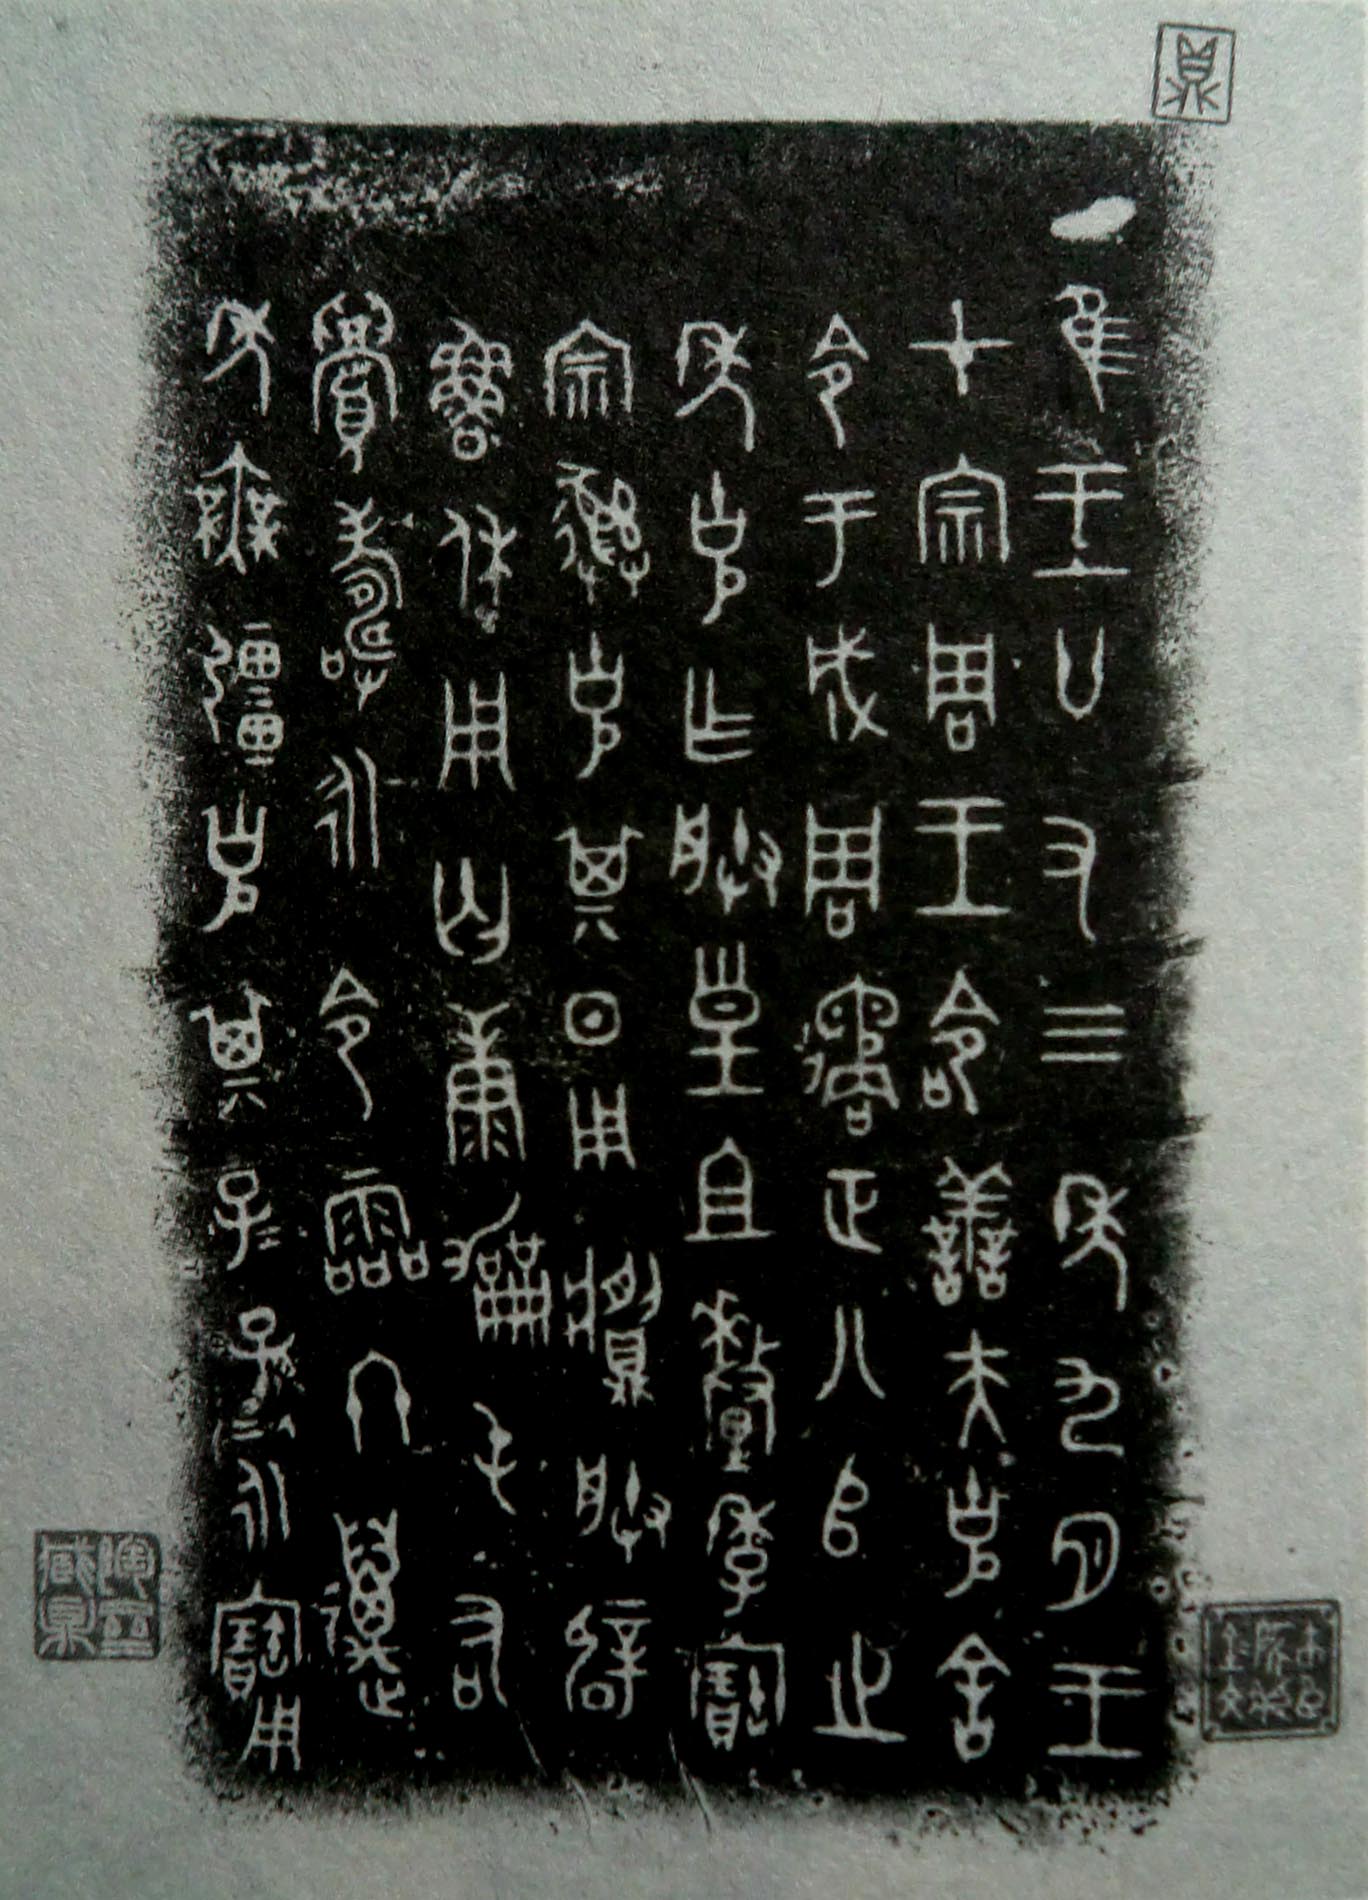 隹王廿又三年九月王
才宗周王命善夫克舍
令于成周遹正八𠂤之
年克乍朕皇且釐季寶
宗彝克其日用䵼朕辟
魯休用匄康龢屯右
眉壽永令霝冬邁
年無疆克其子=孫=永寶用
鼎